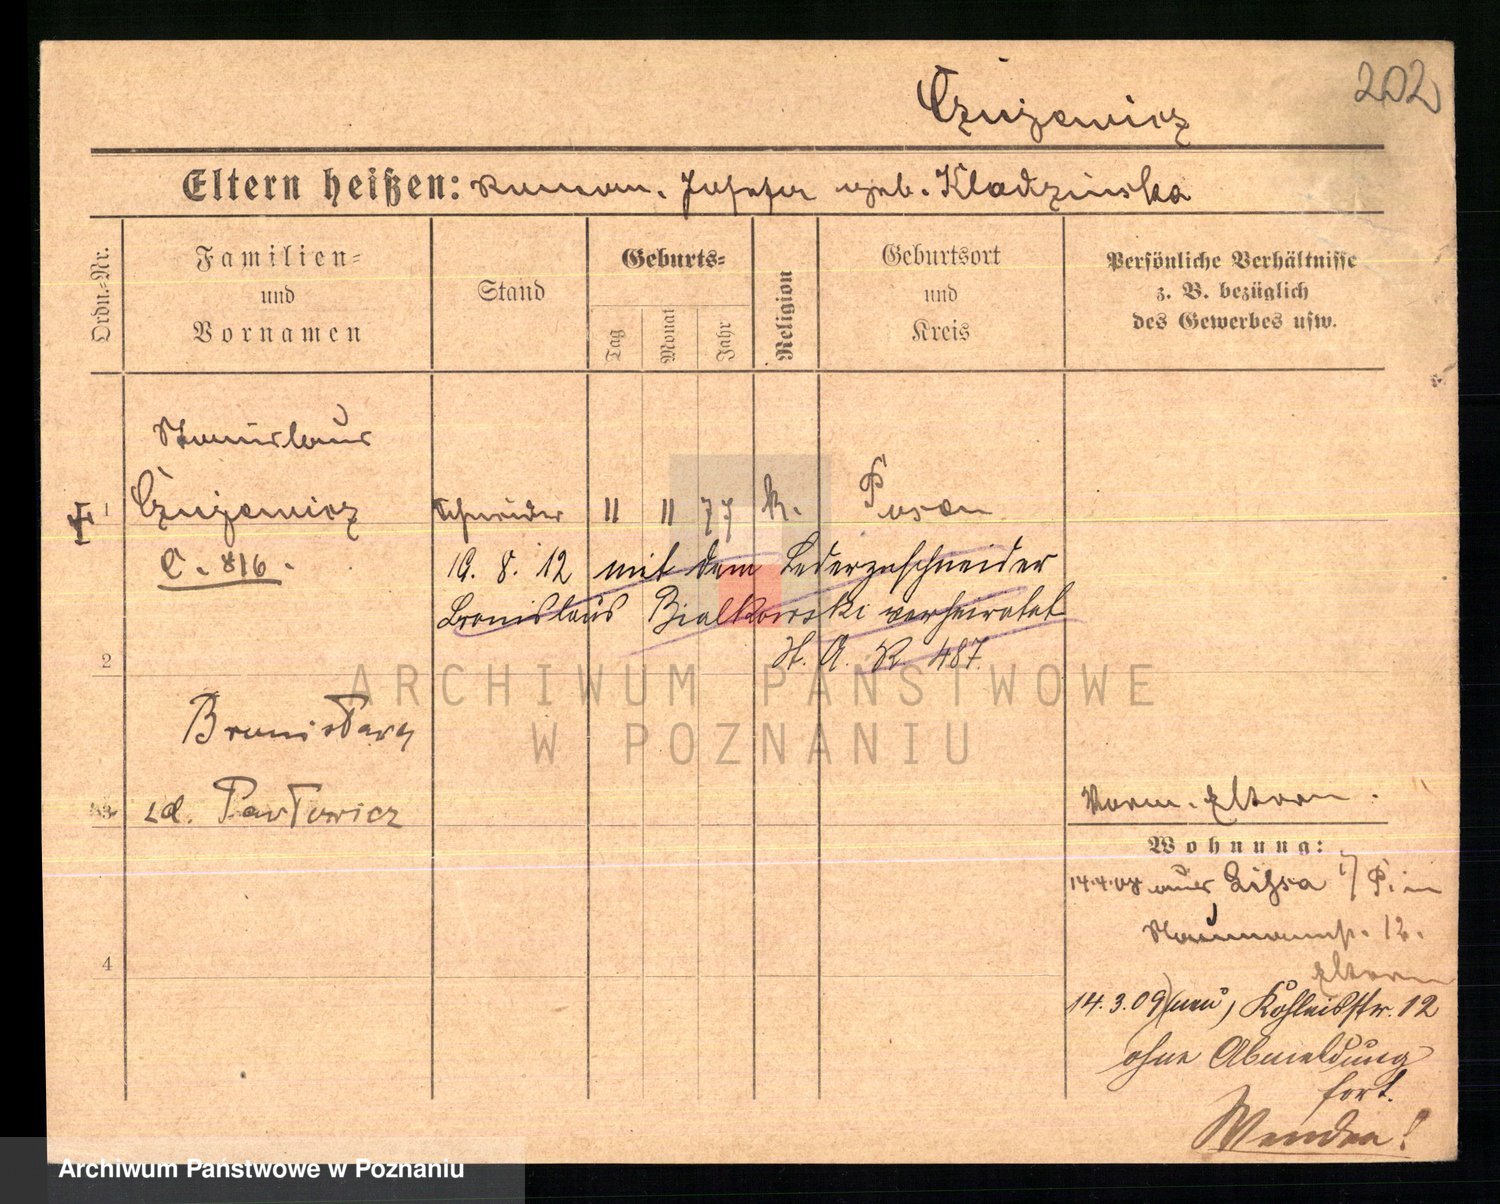 202
Czujewicz
Eltern heißen: Roman. Josefa geb. Kladzinska
Ordn.-Nr.
Familien-
und
Vornamen
Stand
Geburts-
Tag
Monat
Jahr
Religion
Geburtsort
und
Kreis
Persönliche Verhältnisse
z. B. bezüglich
des Gewerbes usw.
Stanislaus
1 Czujewicz Schneider 11 11 77 k. Posen
C. 816.
19. 8. 12 mit dem Lederzuschneider
Bronislaus Bialkowski verheiratet
H. A. R. 487.
2
ARCHIWUM PAŃSTWOWE
W POZNANIU
Bronisława
3 zd. Pawłowicz
Vorm. Eltern.
Wohnung:
14.4.08 aus
12.
4
Eltern
14.3.09 (neu)
12
ohne Abmeldung
fort.
Wenden!
Archiwum Państwowe w Poznaniu